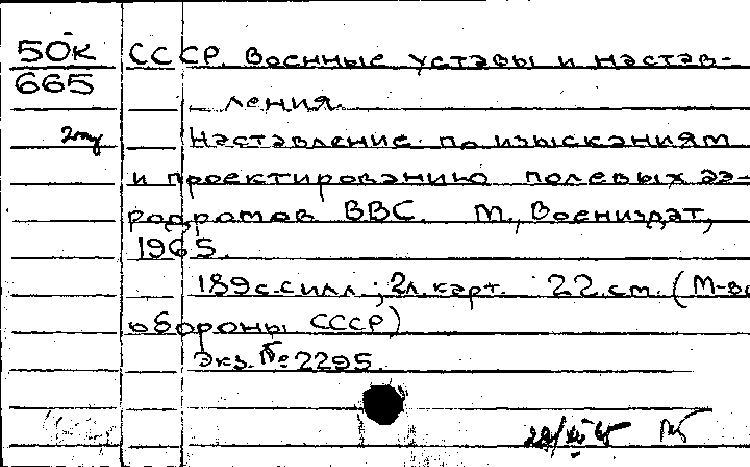 50к СССР. Военные уставы и настав-
665
ления.
Наставление по изысканиям
и проектированию полевых аэ-
родромов ВВС. М., Воениздат,
1965.
189 с. с илл.; 2 л. карт. 22 см. (М-во
обороны СССР)
Экз. № 2295.